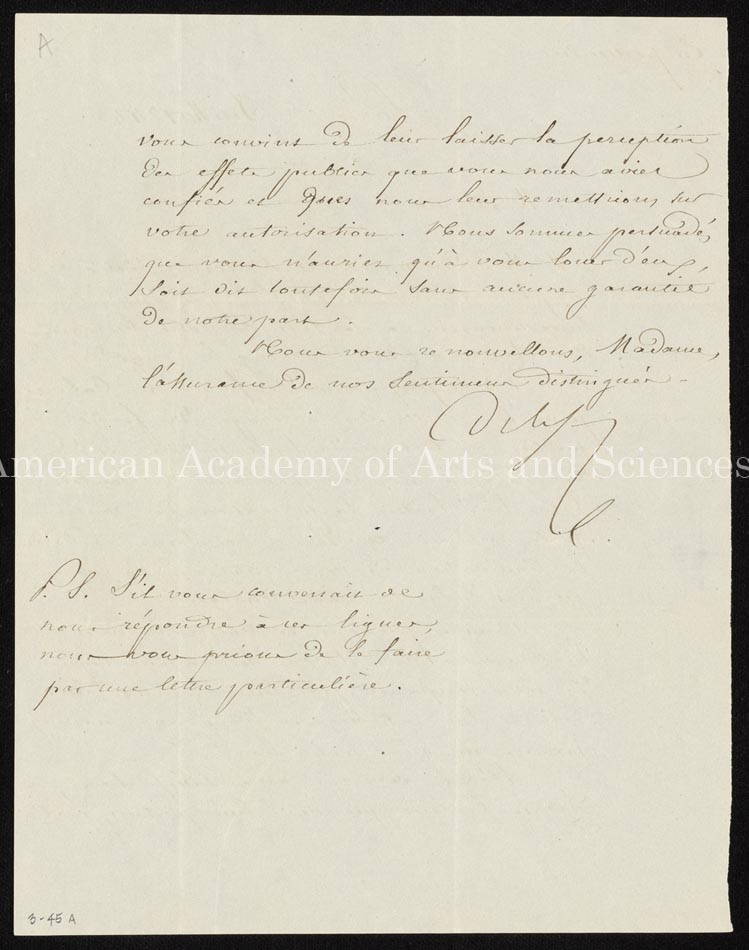 A
vous convint de leur laisser la perception
des effets publics que vous nous aviez
confiés et que nous leur remettrions sur
votre autorisation. Nous sommes persuadés,
que vous n'auriez qu'à vous louer d'eux,
soit dit toutefois sans aucune garantie
de notre part.
Nous vous renouvellons, Madame,
l'assurance de nos sentimens distingués.
American Academy of Arts and Sciences
P. S. S'il vous convenait de
nous répondre à ces lignes,
nous vous prions de le faire
par une lettre particulière.
3-45 A